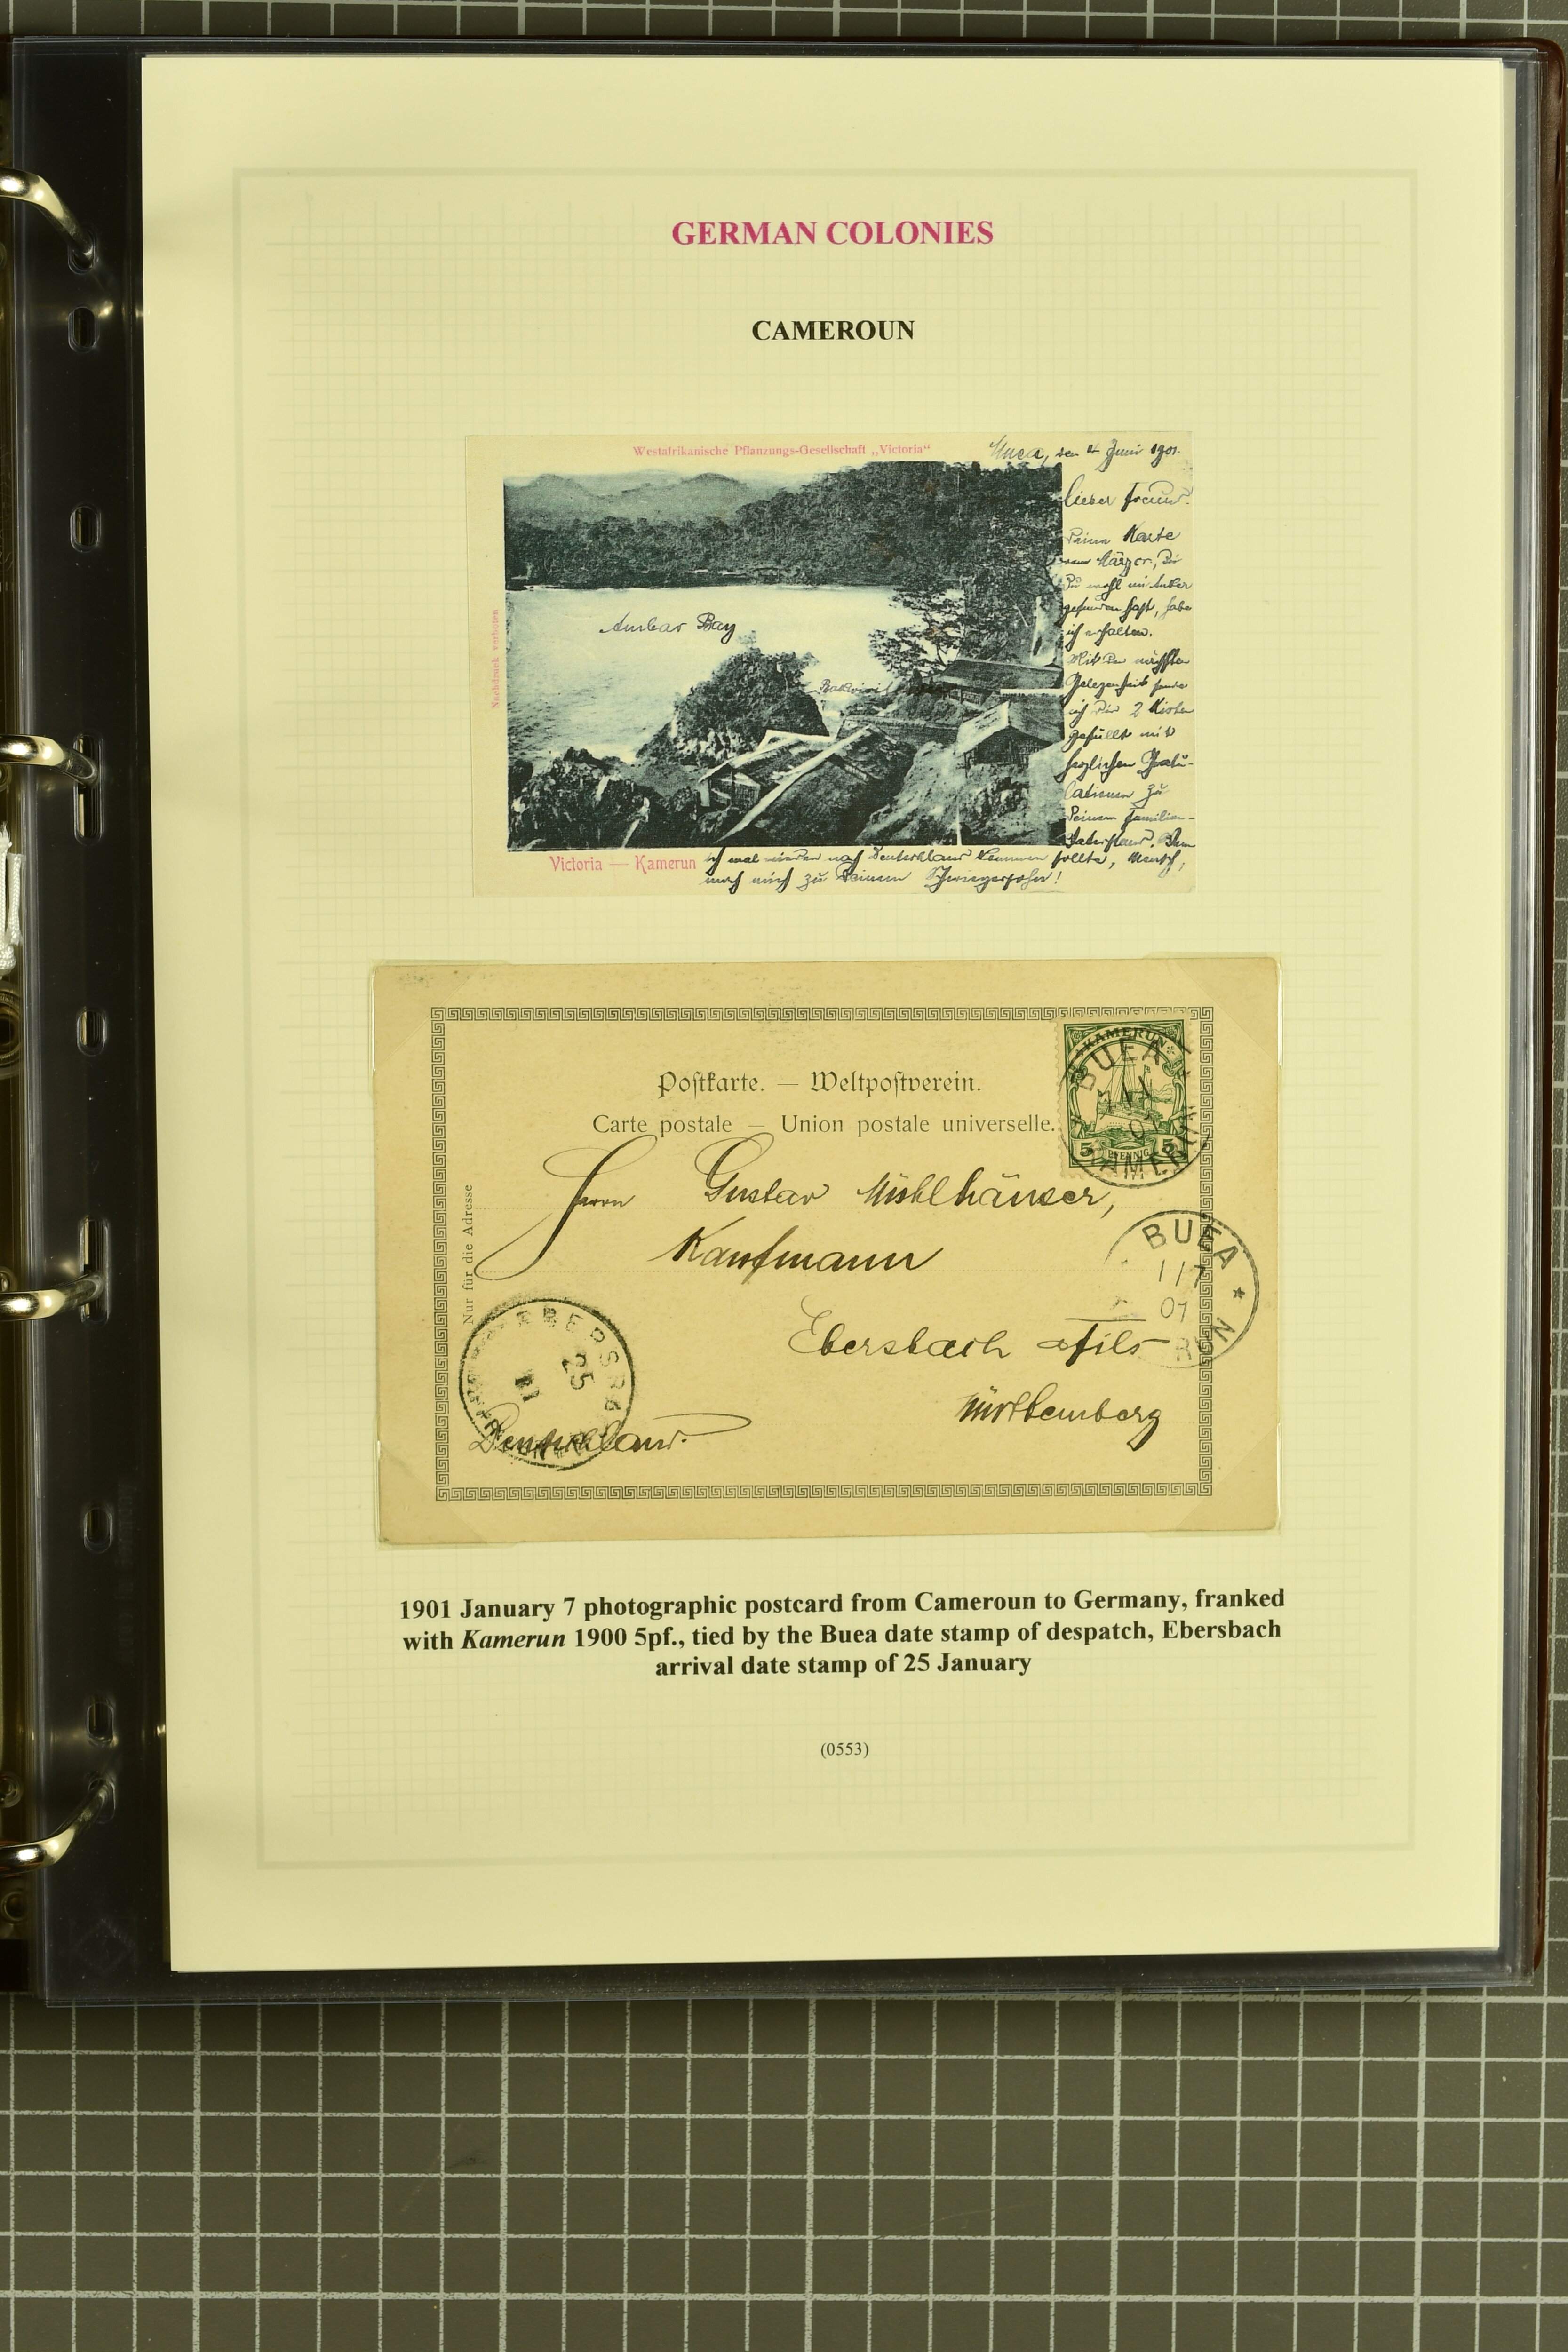 GERMAN COLONIES
CAMEROUN
Westafrikanische Pflanzungs-Gesellschaft „Victoria“
Buea, den 4 Juni 1901.
Lieber Freund!
Deine Karte
vom März cr., die
Du wohl im Anker
gefunden hast, habe
ich erhalten.
Mit der nächsten
Gelegenheit sende
ich Dir 2 Kisten
gefüllt mit
herzlichen Gratu-
lationen zu
Deinem Familien-
Vaterstand. Wenn
ich mal wieder nach Deutschland kommen sollte, Mensch,
mach mich zu Deinem Schwiegersohn!
Ambas Bay
Nachdruck verboten
Victoria — Kamerun
Postkarte. — Weltpostverein.
Carte postale — Union postale universelle.
KAMERUN
5 PFENNIG 5
BUEA
01
KAMERUN
Herrn Gustav Mühlhäuser,
Kaufmann
Ebersbach a/Fils
Württemberg
Deutschland.
Nur für die Adresse
BUEA
1/7
01
RUN
EBERSBA
25
1901 January 7 photographic postcard from Cameroun to Germany, franked
with Kamerun 1900 5pf., tied by the Buea date stamp of despatch, Ebersbach
arrival date stamp of 25 January
(0553)